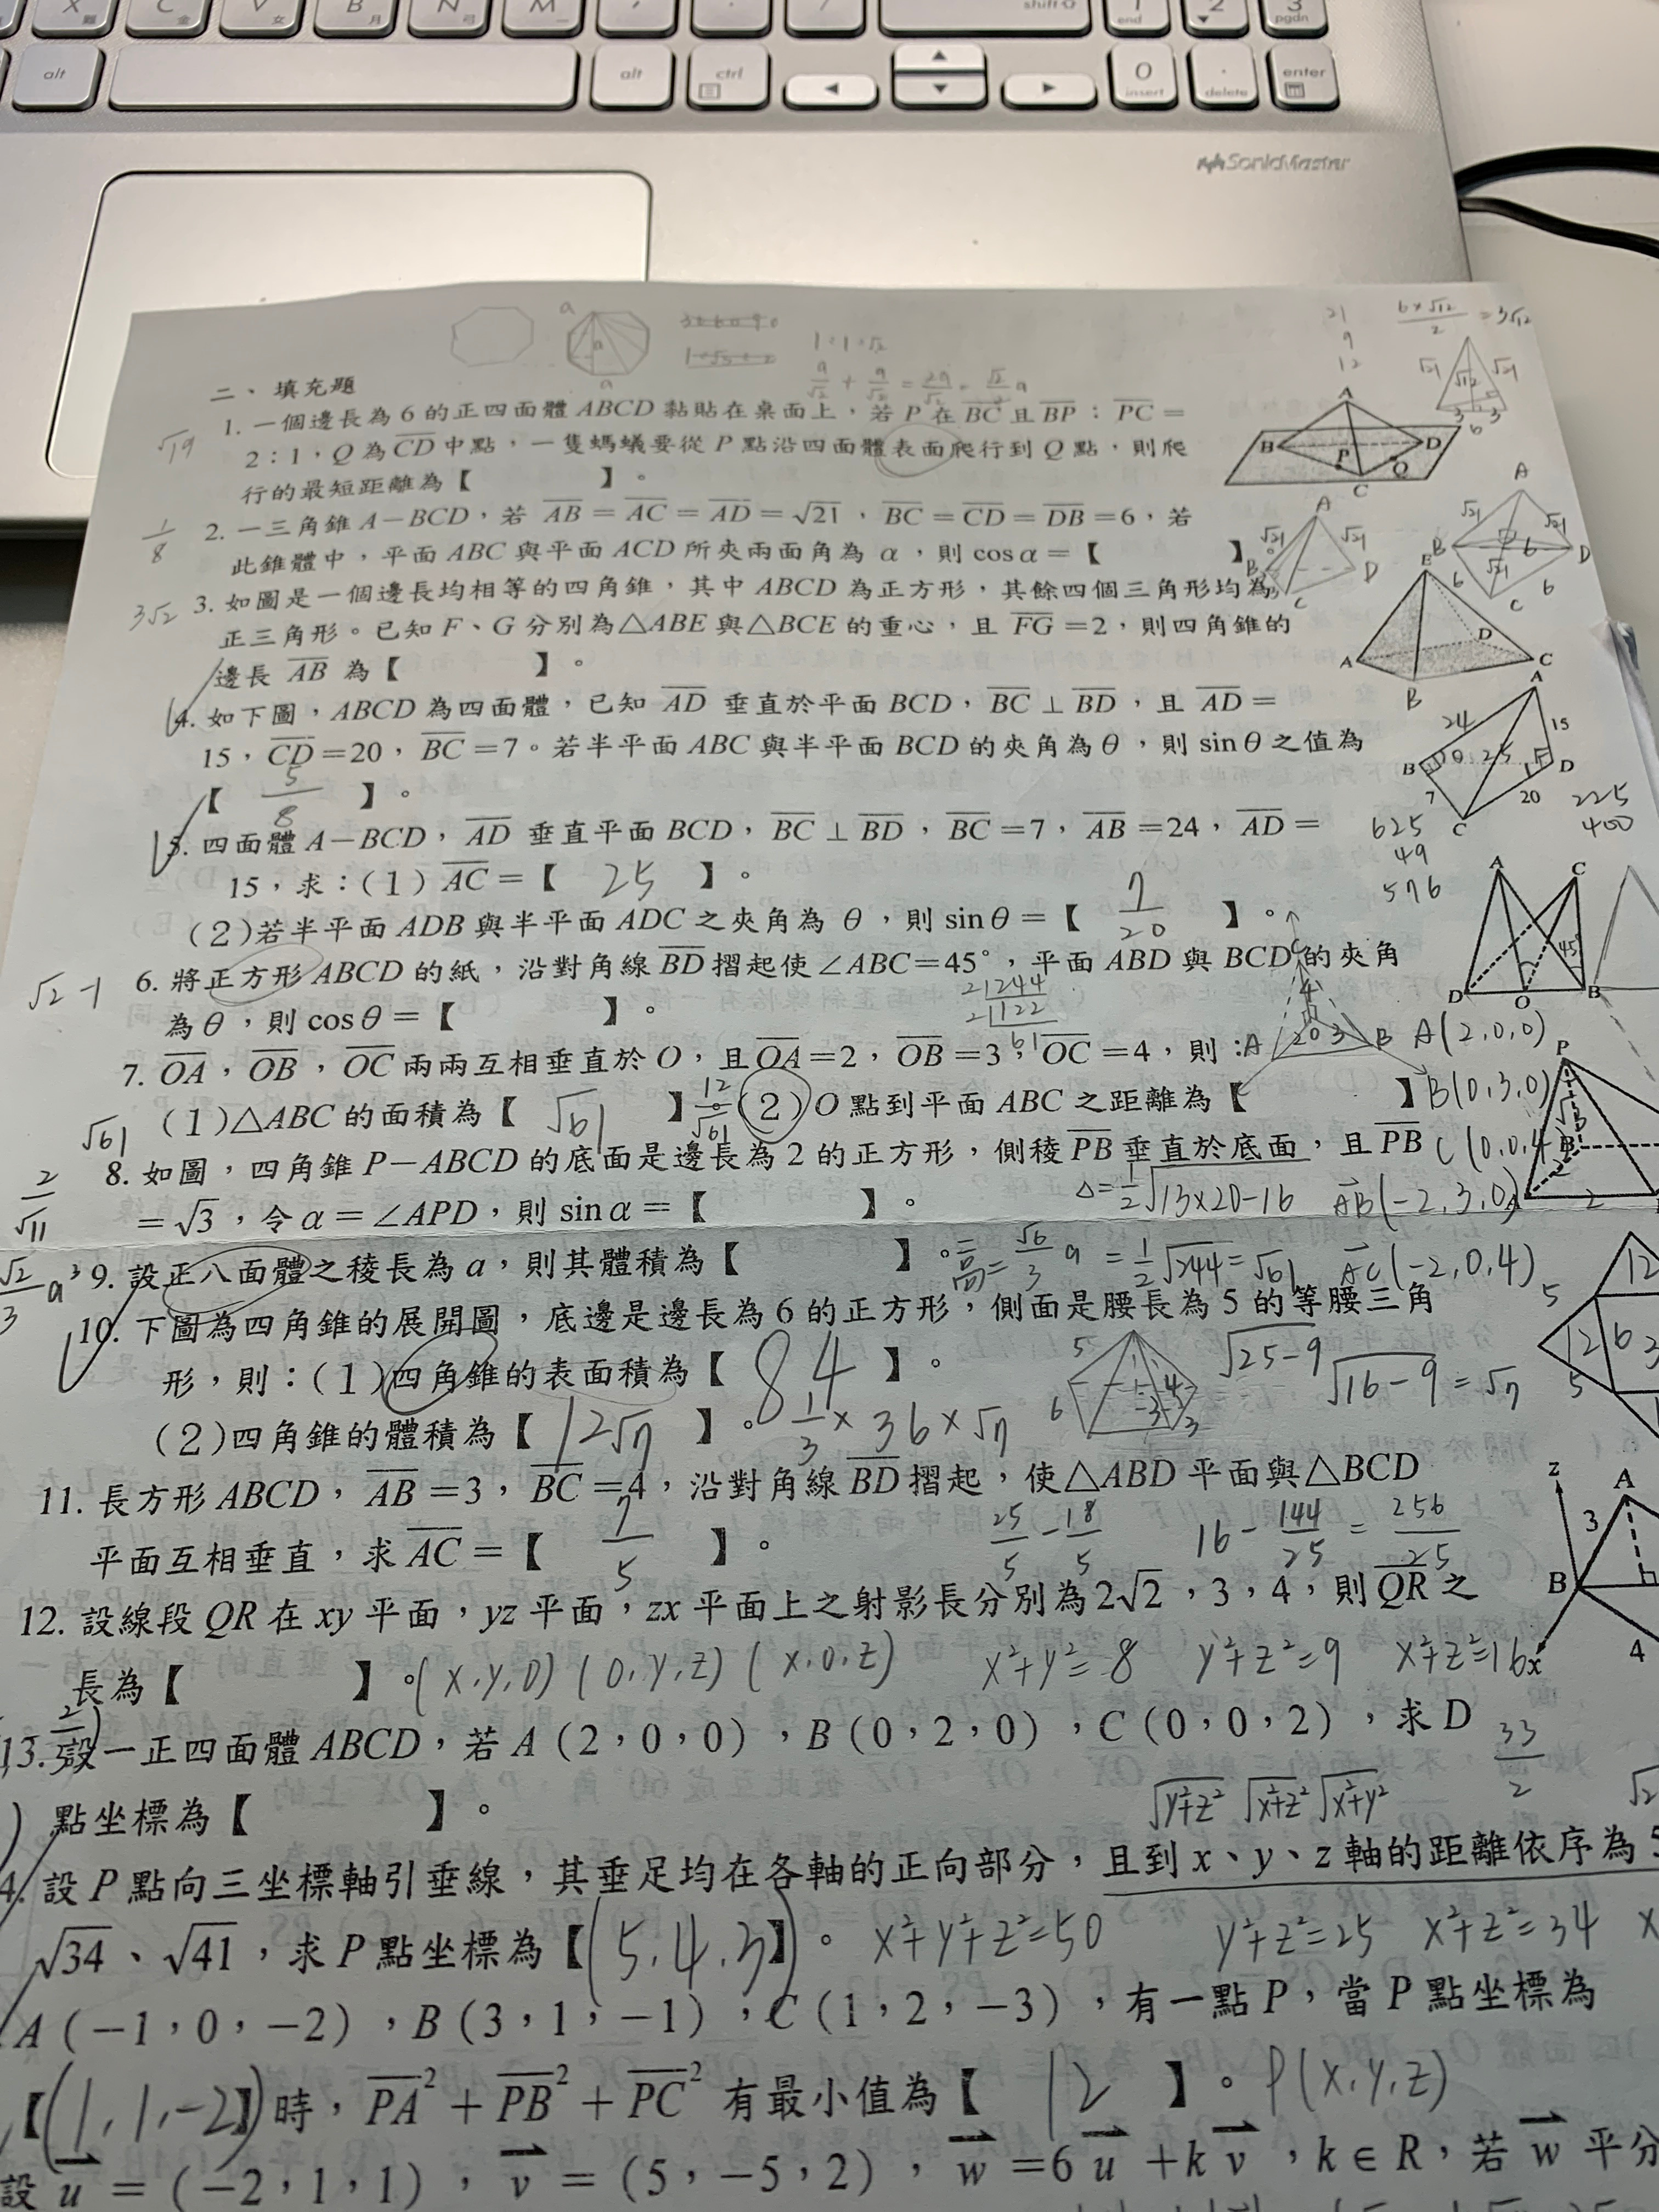 X C V B N M
alt alt ctrl 0 insert . delete enter
shift 1 end 2 3 pgdn
SonicMaster
二、填充題
1. 一個邊長為6的正四面體ABCD黏貼在桌面上,若P在BC且BP:PC=
2:1,Q為CD中點,一隻螞蟻要從P點沿四面體表面爬行到Q點,則爬
行的最短距離為【 】。
√19
2. 一三角錐A-BCD,若AB=AC=AD=√21,BC=CD=DB=6,若
此錐體中,平面ABC與平面ACD所夾兩面角為α,則cosα=【 】。
1/8
3. 如圖是一個邊長均相等的四角錐,其中ABCD為正方形,其餘四個三角形均為
正三角形。已知F、G分別為△ABE與△BCE的重心,且FG=2,則四角錐的
邊長AB為【 】。
3√2
4. 如下圖,ABCD為四面體,已知AD垂直於平面BCD,BC⊥BD,且AD=
15,CD=20,BC=7。若半平面ABC與半平面BCD的夾角為θ,則sinθ之值為
【 5/8 】。
5. 四面體A-BCD,AD垂直平面BCD,BC⊥BD,BC=7,AB=24,AD=
15,求:(1)AC=【 25 】。
(2)若半平面ADB與半平面ADC之夾角為θ,則sinθ=【 7/20 】。
6. 將正方形ABCD的紙,沿對角線BD摺起使∠ABC=45°,平面ABD與BCD的夾角
為θ,則cosθ=【 】。
√2-1
7. OA,OB,OC兩兩互相垂直於O,且OA=2,OB=3,OC=4,則:
(1)△ABC的面積為【 √61 】。(2)O點到平面ABC之距離為【 】
√61
12/√61
A(2,0,0)
B(0,3,0)
C(0,0,4)
8. 如圖,四角錐P-ABCD的底面是邊長為2的正方形,側稜PB垂直於底面,且PB
=√3,令α=∠APD,則sinα=【 】。
2/√11
△=1/2√13×20-16
AB(-2,3,0)
=1/2√244=√61
AC(-2,0,4)
9. 設正八面體之稜長為a,則其體積為【 】。
√2/3 a³
高=√6/3 a
10. 下圖為四角錐的展開圖,底邊是邊長為6的正方形,側面是腰長為5的等腰三角
形,則:(1)四角錐的表面積為【 84 】。
√25-9 √16-9=√7
(2)四角錐的體積為【 12√7 】。 1/3×36×√7
11. 長方形ABCD,AB=3,BC=4,沿對角線BD摺起,使△ABD平面與△BCD
平面互相垂直,求AC=【 7/5 】。
25/5-18/5 16-144/25=256/25
12. 設線段QR在xy平面,yz平面,zx平面上之射影長分別為2√2,3,4,則QR之
長為【 】。(x,y,0) (0,y,z) (x,0,z) x²+y²=8 y²+z²=9 x²+z²=16
33/2
13. 設一正四面體ABCD,若A(2,0,0),B(0,2,0),C(0,0,2),求D
點坐標為【 】。
√y²+z² √x²+z² √x²+y²
4. 設P點向三坐標軸引垂線,其垂足均在各軸的正向部分,且到x、y、z軸的距離依序為5
√34、√41,求P點坐標為【(5,4,3)】。 x²+y²+z²=50 y²+z²=25 x²+z²=34 x
A(-1,0,-2),B(3,1,-1),C(1,2,-3),有一點P,當P點坐標為
【(1,1,-2)】時,PA²+PB²+PC²有最小值為【 12 】。P(x,y,z)
設u=(-2,1,1),v=(5,-5,2),w=6u+kv,k∈R,若w平分